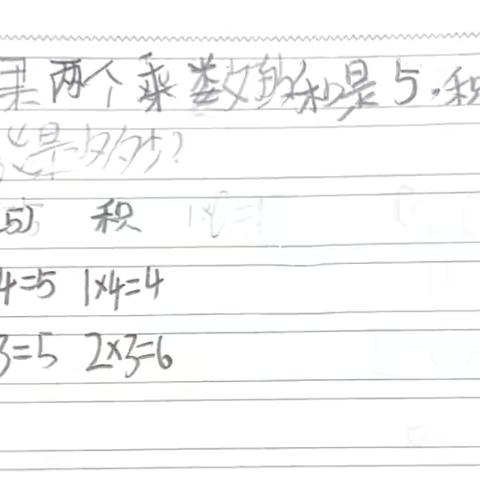 果两个乘数的和是5，积
总是多少？
5) 积
4=5 1×4=4
3=5 2×3=6